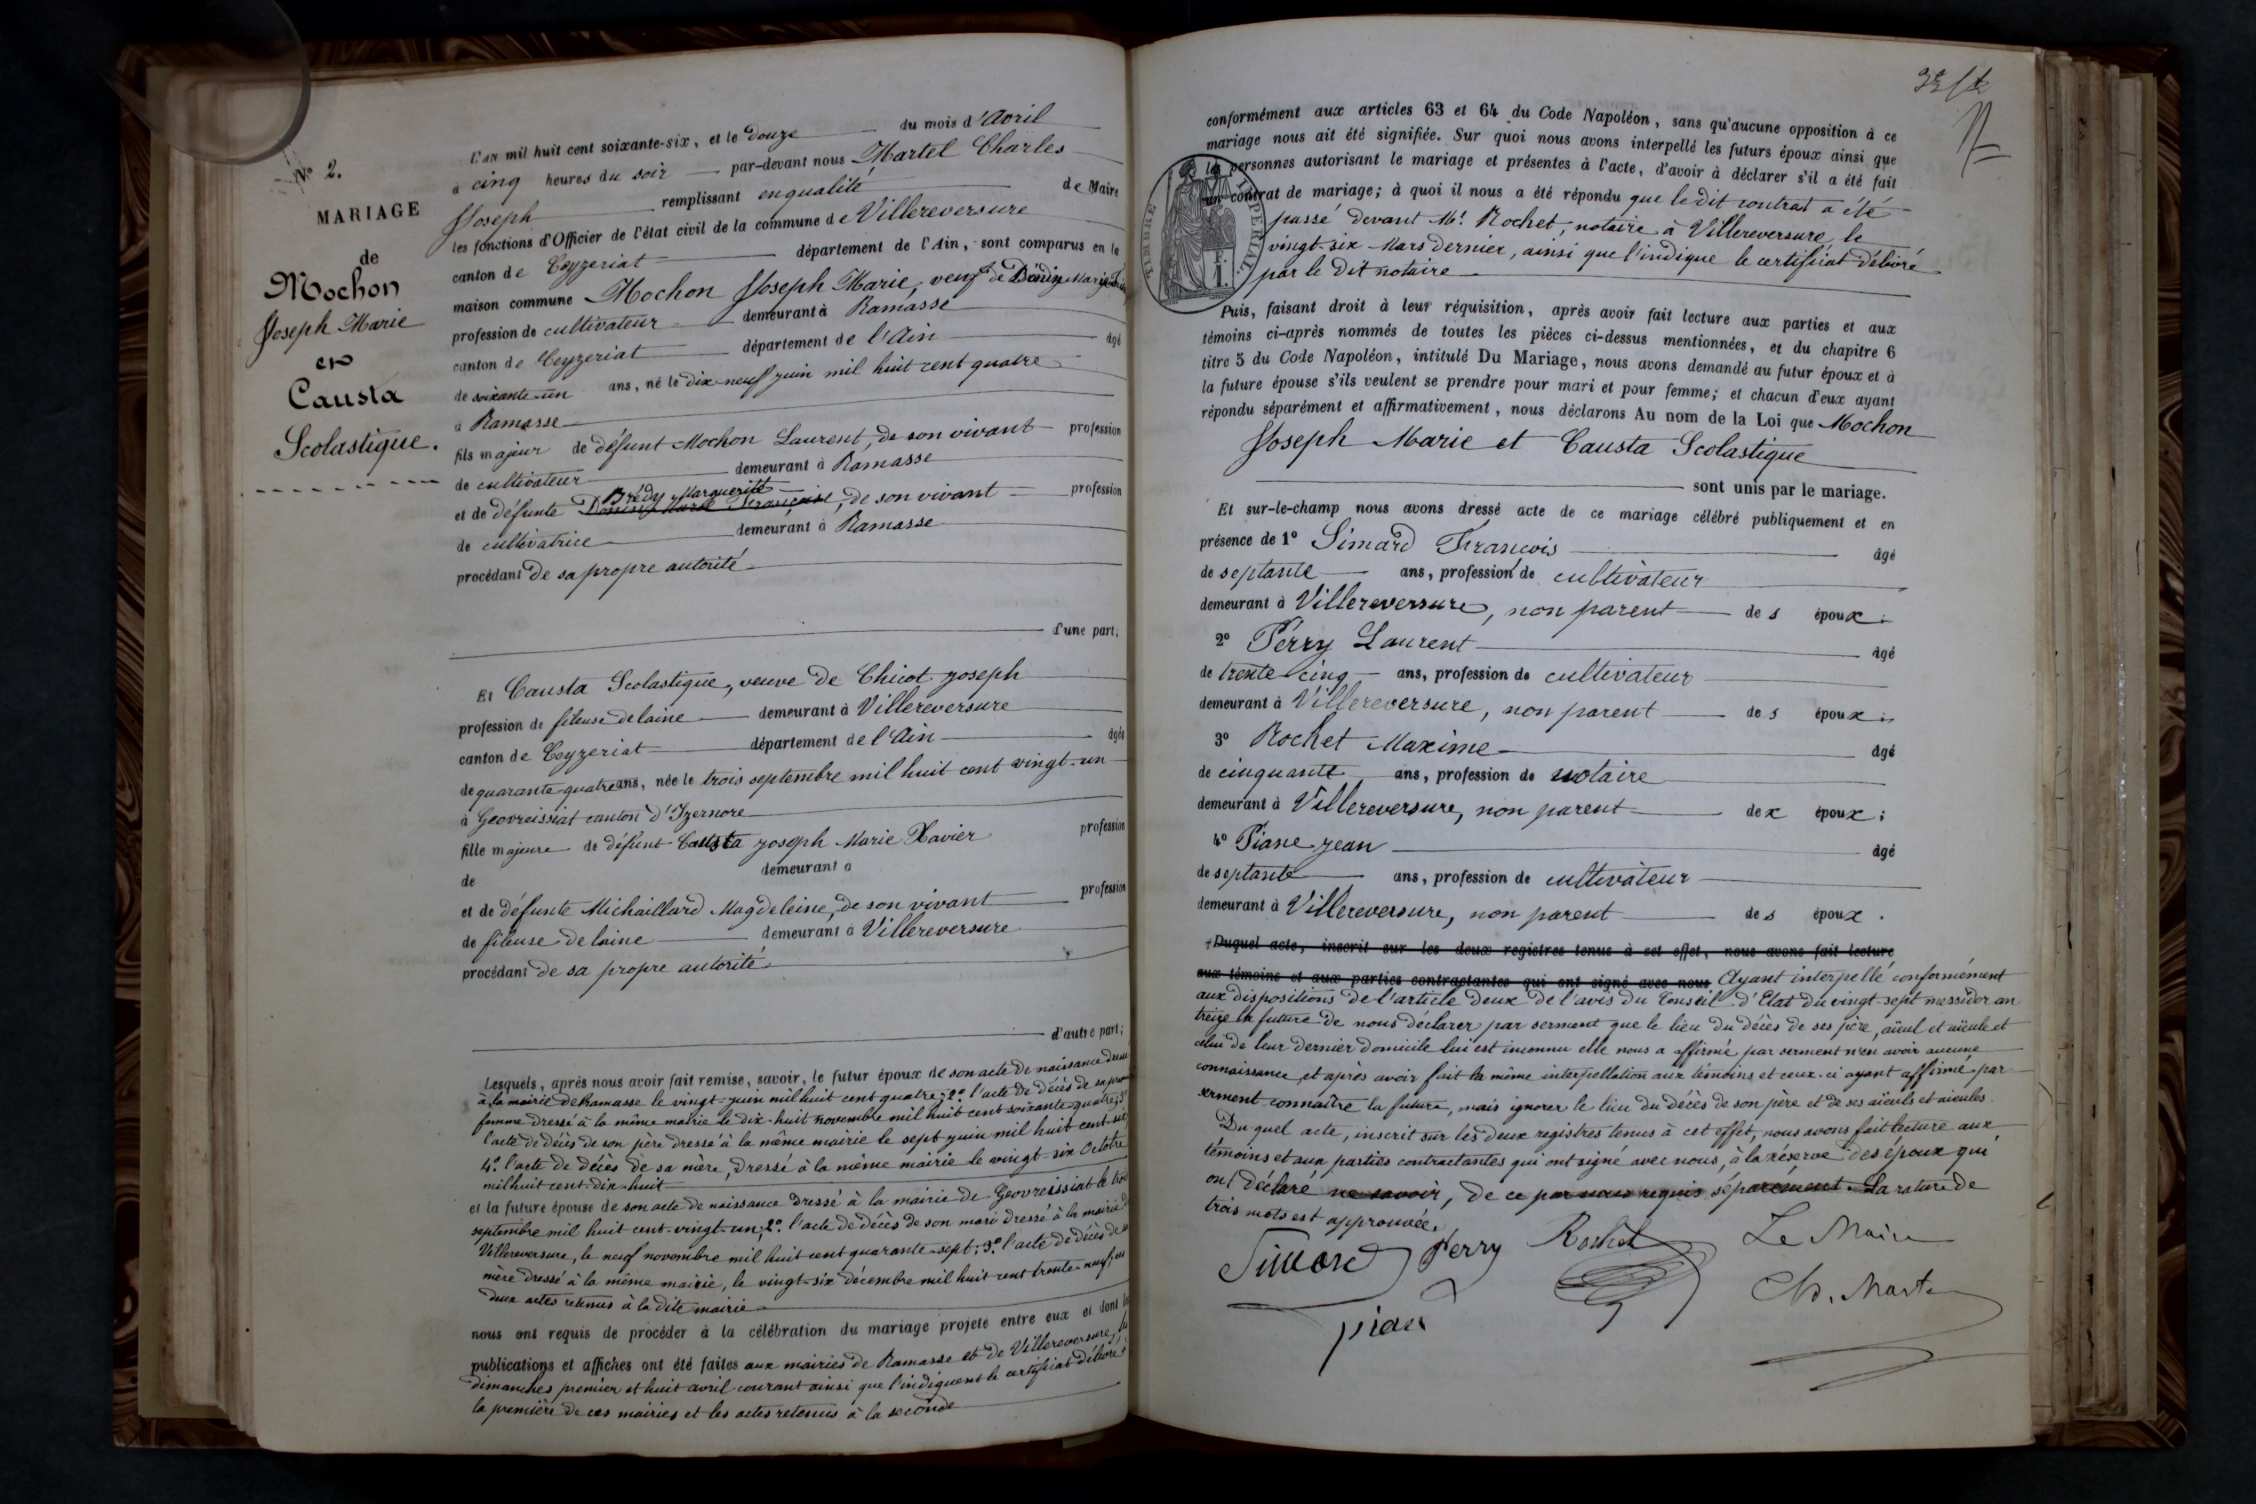 N° 2.
MARIAGE
de
Mochon
Joseph Marie
et
Causta
Scolastique.
L'an mil huit cent soixante-six, et le douze du mois d'Avril
à cinq heures du soir par-devant nous Martel Charles
Joseph remplissant en qualité de Maire
les fonctions d'Officier de l'état civil de la commune de Villereversure
canton de Ceyzeriat département de l'Ain, sont comparus en la
maison commune Mochon Joseph Marie, veuf de Marie
profession de cultivateur demeurant à Ramasse
canton de Ceyzeriat département de l'Ain âgé
de soixante-un ans, né le dix-neuf juin mil huit cent quatre
à Ramasse
fils majeur de défunt Mochon Laurent, de son vivant profession
de cultivateur demeurant à Ramasse
Brédy Marguerite
et de défunte Marie Françoise, de son vivant profession
de cultivatrice demeurant à Ramasse
procédant de sa propre autorité
d'une part;
Et Causta Scolastique, veuve de Chicot Joseph
profession de fileuse de laine demeurant à Villereversure
canton de Ceyzeriat département de l'Ain âgée
de quarante-quatre ans, née le trois septembre mil huit cent vingt-un
à Geovreissiat canton d'Izernore
fille majeure de défunt Causta Joseph Marie Xavier profession
de demeurant à
et de défunte Michaillard Magdeleine, de son vivant profession
de fileuse de laine demeurant à Villereversure
procédant de sa propre autorité
d'autre part;
Lesquels, après nous avoir fait remise, savoir, le futur époux de son acte de naissance dressé
à la mairie de Ramasse le vingt-juin mil huit cent quatre; 2°. l'acte de décès de sa
femme dressé à la même mairie le dix-huit novembre mil huit cent soixante-quatre; 3°
l'acte de décès de son père dressé à la même mairie le sept juin mil huit cent six
4°. l'acte de décès de sa mère, dressé à la même mairie le vingt-six Octobre
mil huit cent-dix-huit
et la future épouse de son acte de naissance dressé à la mairie de Geovreissiat le trois
septembre mil huit cent-vingt-un; 2°. l'acte de décès de son mari dressé à la mairie de
Villereversure, le neuf novembre mil huit cent quarante-sept; 3°. l'acte de décès de sa
mère dressé à la même mairie, le vingt-six décembre mil huit cent trente-neuf, ces
deux actes retenus à la dite mairie
nous ont requis de procéder à la célébration du mariage projeté entre eux et dont les
publications et affiches ont été faites aux mairies de Ramasse et de Villereversure, les
dimanches premier et huit avril courant ainsi que l'indiquent le certificat délivré à
la première de ces mairies et les actes retenus à la seconde
conformément aux articles 63 et 64 du Code Napoléon, sans qu'aucune opposition à ce
mariage nous ait été signifiée. Sur quoi nous avons interpellé les futurs époux ainsi que
les personnes autorisant le mariage et présentes à l'acte, d'avoir à déclarer s'il a été fait
un contrat de mariage; à quoi il nous a été répondu que le dit contrat a été
TIMBRE IMPERIAL
passé devant Me. Rochet, notaire à Villereversure, le
vingt-six Mars dernier, ainsi que l'indique le certificat délivré
par le dit notaire
Puis, faisant droit à leur réquisition, après avoir fait lecture aux parties et aux
témoins ci-après nommés de toutes les pièces ci-dessus mentionnées, et du chapitre 6
titre 5 du Code Napoléon, intitulé Du Mariage, nous avons demandé au futur époux et à
la future épouse s'ils veulent se prendre pour mari et pour femme; et chacun d'eux ayant
répondu séparément et affirmativement, nous déclarons Au nom de la Loi que Mochon
Joseph Marie et Causta Scolastique
sont unis par le mariage.
Et sur-le-champ nous avons dressé acte de ce mariage célébré publiquement et en
présence de 1° Simard François âgé
de septante ans, profession de cultivateur
demeurant à Villereversure, non parent des époux;
2° Perry Laurent âgé
de trente cinq ans, profession de cultivateur
demeurant à Villereversure, non parent des époux;
3° Rochet Maxime âgé
de cinquante ans, profession de notaire
demeurant à Villereversure, non parent des époux;
4° Piane Jean âgé
de septante ans, profession de cultivateur
demeurant à Villereversure, non parent des époux.
Duquel acte, inscrit sur les deux registres tenus à cet effet, nous avons fait lecture
aux témoins et aux parties contractantes qui ont signé avec nous Ayant interpellé conformément
aux dispositions de l'article deux de l'avis du Conseil d'Etat du vingt-sept messidor an
treize la future de nous déclarer par serment que le lieu du décès de ses père, aïeul et aïeule et
celui de leur dernier domicile lui est inconnu elle nous a affirmé par serment n'en avoir aucune
connaissance, et après avoir fait la même interpellation aux témoins et ceux-ci ayant affirmé par
serment connaître la future, mais ignorer le lieu du décès de son père et de ses aïeuls et aïeules.
Du quel acte, inscrit sur les deux registres tenus à cet effet, nous avons fait lecture aux
témoins et aux parties contractantes qui ont signé avec nous, à la réserve des époux qui
ont déclaré ne savoir, de ce par nous requis séparément. La rature de
trois mots est approuvée.
Simard Perry Rochet Le Maire
pian Ch. Martel